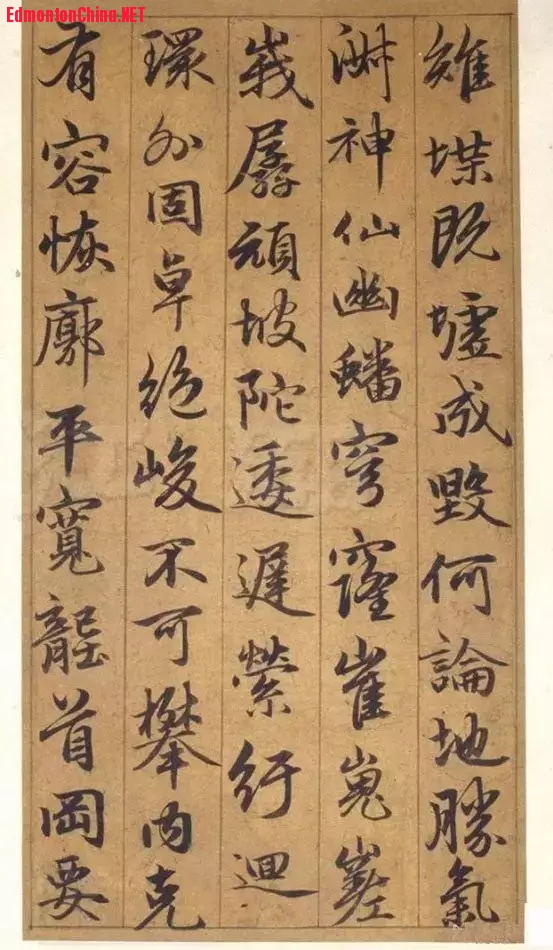 EdmontonChina.NET
雉堞既墟成毀何論地勝氣
神仙幽蟠穹窿崔嵬嵳
峩孱顏坡陀逶遲縈紆迴
環外固卓絕峻不可攀內克
有容恢廓平寬壟首岡要